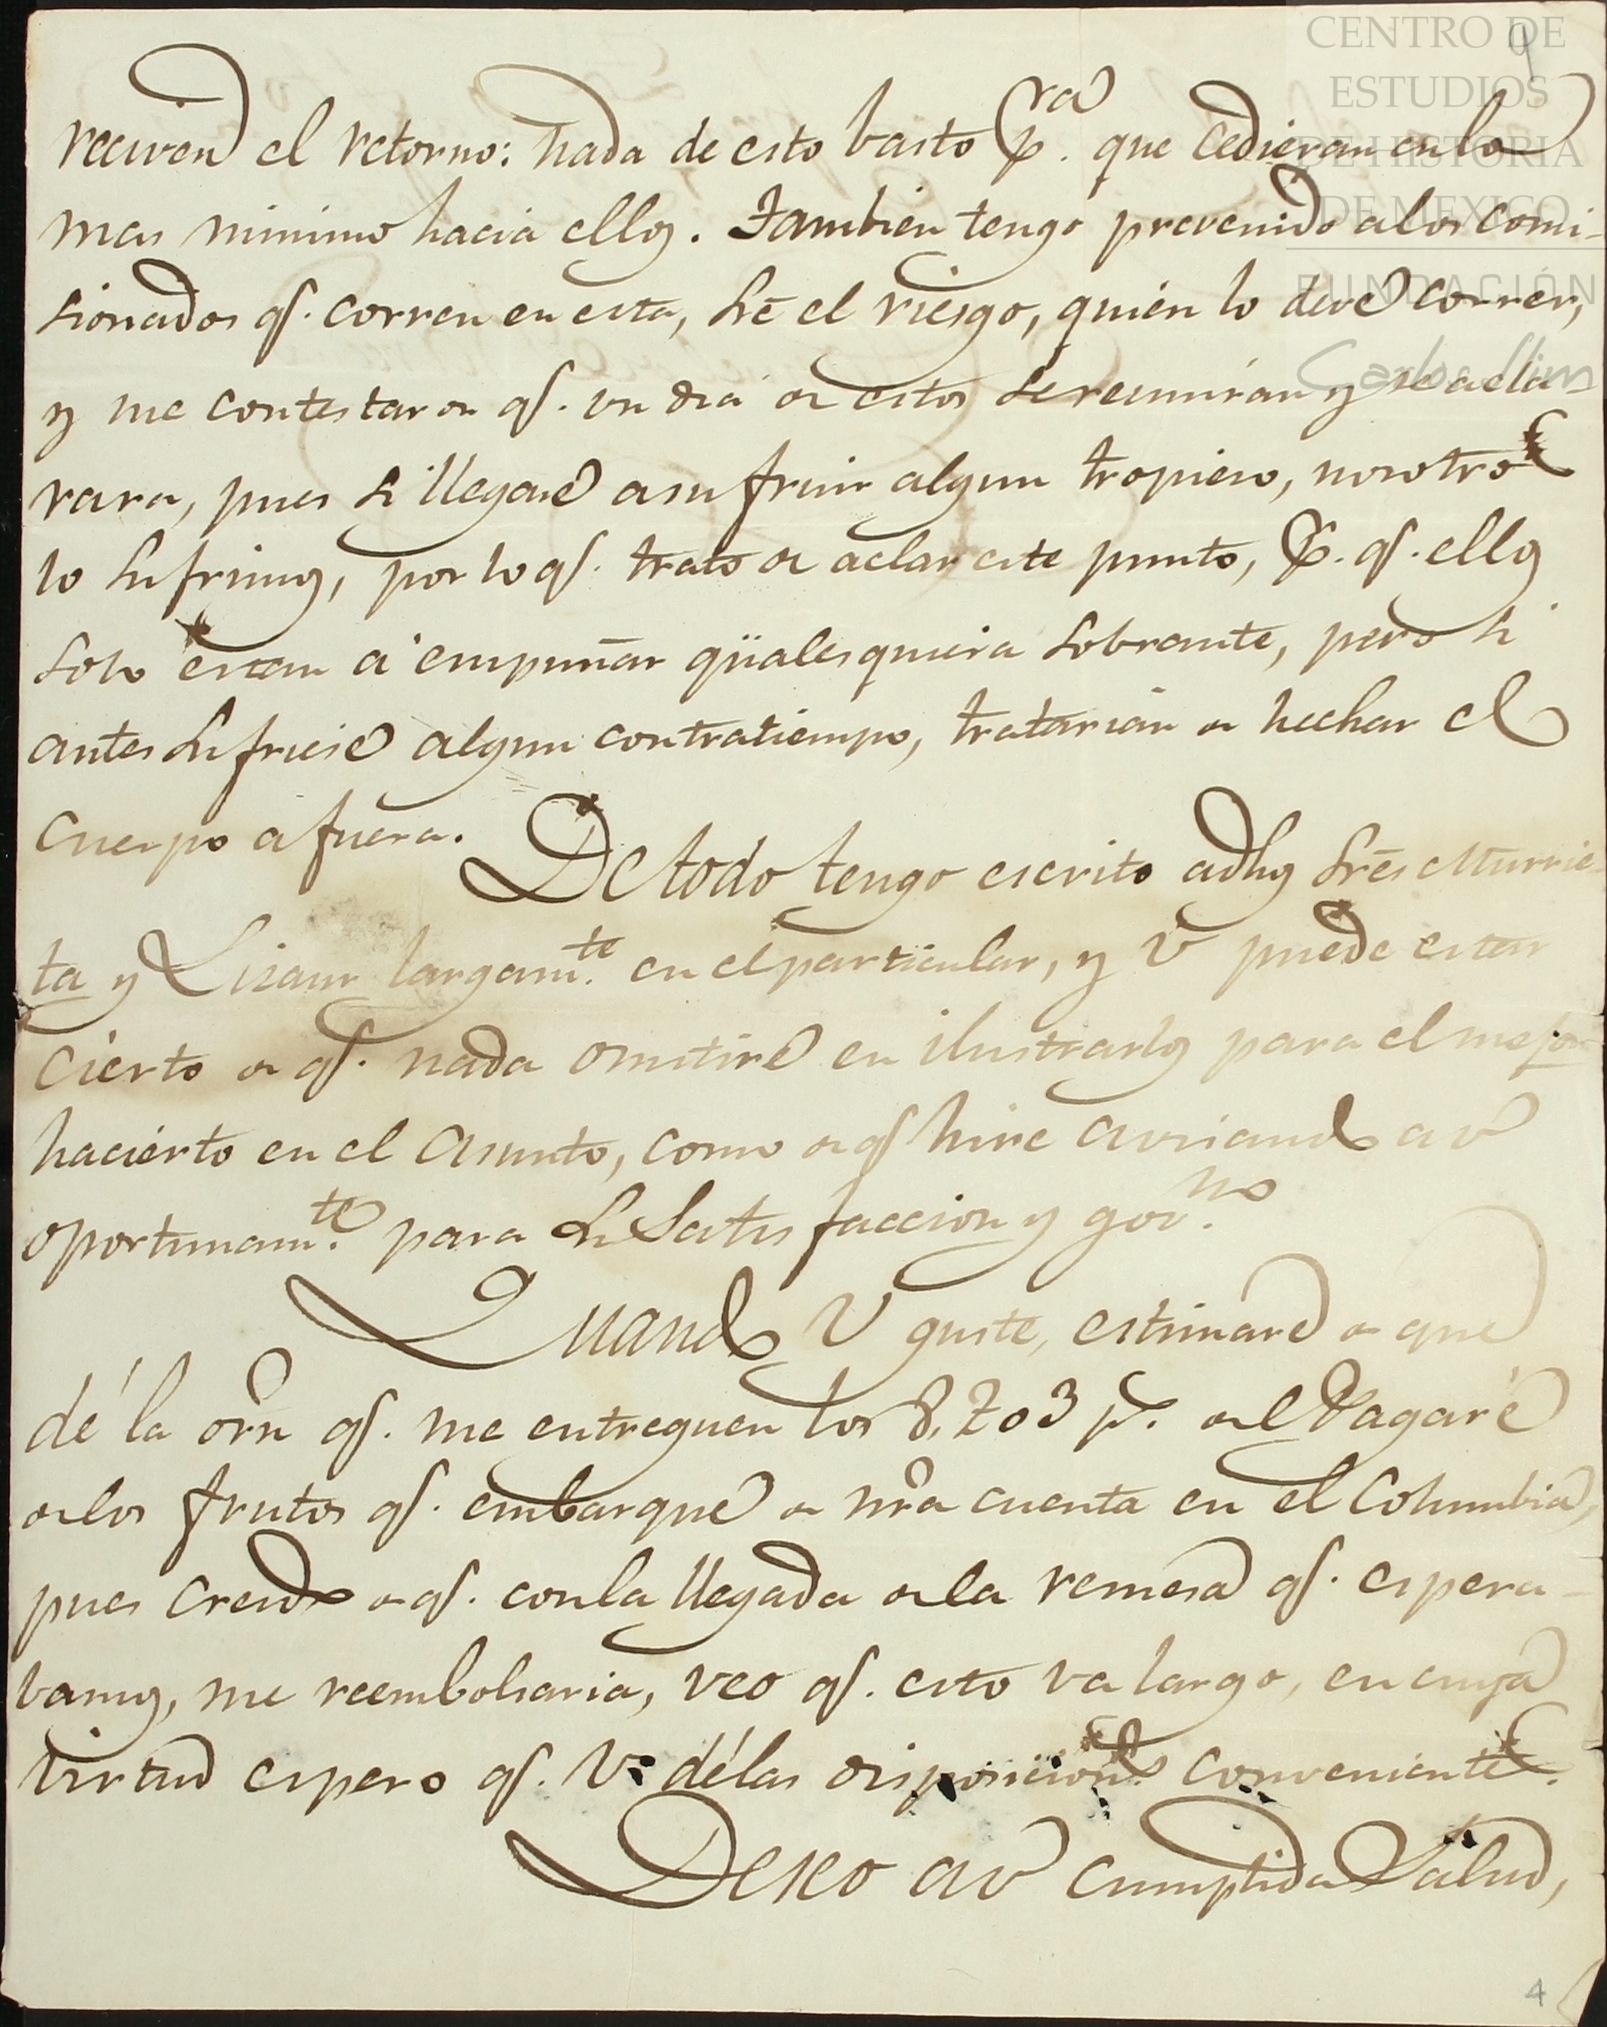 CENTRO DE
ESTUDIOS
DE HISTORIA
DE MEXICO
FUNDACIÓN
Carlos Slim
reciven el retorno: nada de esto basto p.ra que cedieran en lo
mas minimo hacia ellos. Tambien tengo prevenido a los comi-
sionados qe. corren en esta, sre el riesgo, quien lo deve correr,
y me contestaron qe. un dia de estos se reuniran y se acla-
rara, pues si llegase a sufrir algun tropieso, nosotros
lo sufrimos, por lo qe. trato de aclar este punto, p. qe. ellos
solo estan á empuñar qüalesquiera sobrante, pero si
antes sufriese algun contratiempo, tratarian de hechar el
cuerpo a fuera.
De todo tengo escrito a dhos Sres Murrie-
ta y Lizaur largam.te en el particular, y V puede estar
cierto de qe. nada omitiré en ilustrarlos para el mejor
hacierto en el asunto, como de qe hire avisando a V
oportunam.te para su satisfaccion y gov.no
Quando V guste, estimaré de que
dé la orn qe. me entreguen los 8,203 ps. del Pagaré
de los frutos qe. embarqué de nra cuenta en el Columbia,
pues creido de qe. con la llegada de la remesa qe. espera-
bamos, me reembolsaria, veo qe. esto va largo, en cuya
virtud espero qe. V. dé las disposiciones convenientes.
Deseo a V cumplida Salud,
4